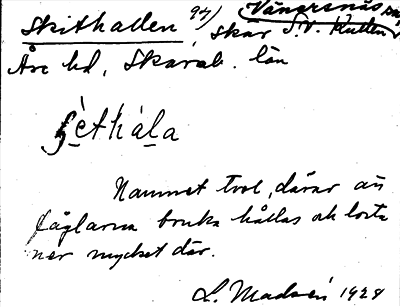 Skithallen 94) Vänersnäs sn,
skär S.V. Kullen
Åse hd, Skarab. län
Namnet trol. därav att
fåglarna bruka hållas och lorta
ner mycket där.
L. Madsén 1929